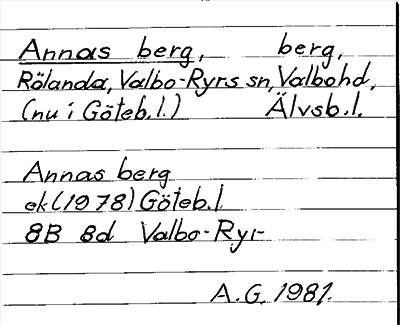 Annas berg, berg,
Rölanda, Valbo-Ryrs sn, Valbohd,
(nu i Göteb.l.) Älvsb.l.
Annas berg
ek (1978) Göteb.l
8B 8d Valbo-Ryr
A.G. 1981.